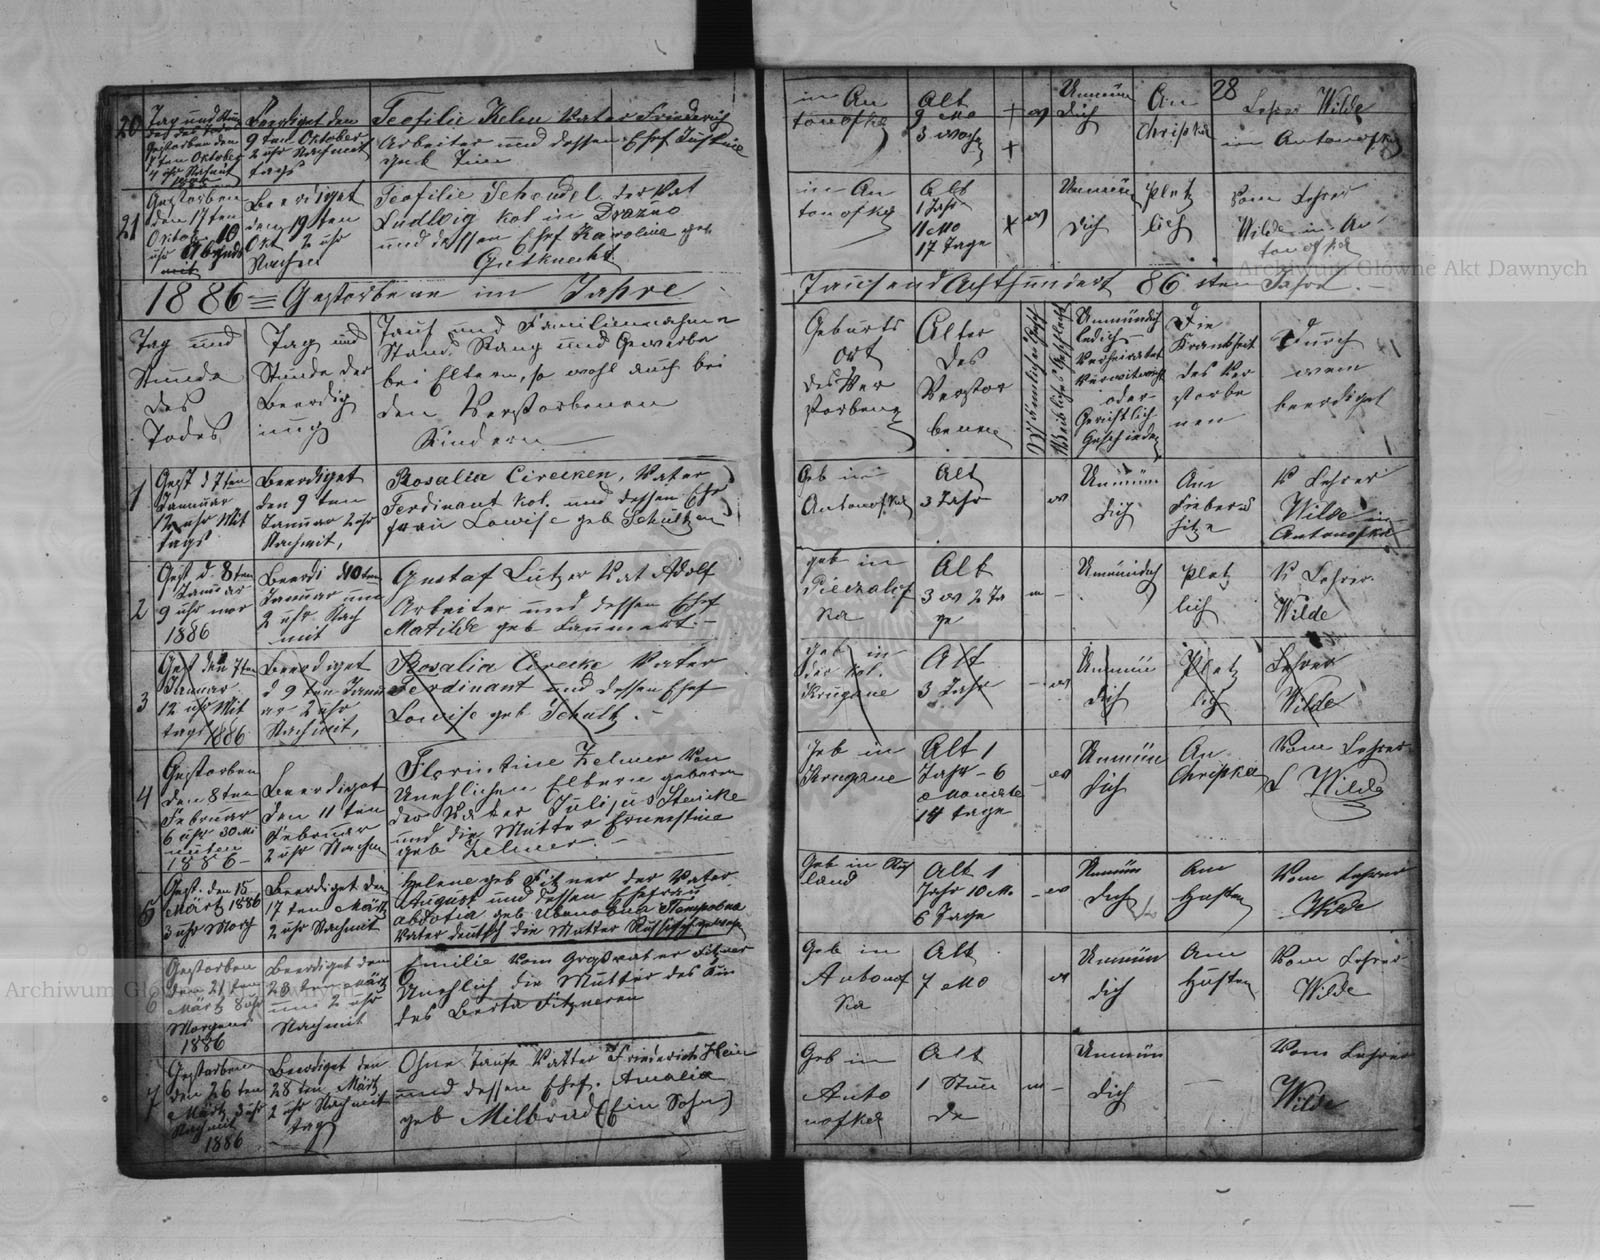 20
Tag und Stun
des des Todes
Gestorben den
7 ten Oktober
4 uhr Nachmit
1885
Beerdiget den
9 ten Oktober
2 uhr Nachmit
tags
Teofilie Kelm Vater Friederich
Arbeiter und dessen Ehef Justine
geb
in An
tonofka
Alt
9 Mo
3 woch
Unmün
dich
An
Chripka
28
Lehr Wilde
in Antonofka
21
Gestorben
den 17 ten
Oktob 10
uhr Abends
mit
Beerdiget
den 19 ten
Okt 2 uhr
Nachm
Teofilie Schendel der Vat
Ludwig kol in Drazno
und dessen Ehef Karoline geb
Gutknecht
in An
tonofka
Alt
1 Jahr
11 Mo
17 Tage
Unmün
dich
Pletz
lich
Vom Lehrer
Wilde in An
tonofka
1886 = Gestorbene im Jahre
Tausend Achthundert 86 sten Jahre
Tag und
Stunde
des
Todes
Tag und
Stunde der
Beerdig
ung
Tauf und Familiennahme
Stand, Rang und Gewerbe
bei Eltern, so wohl auch bei
den Verstorbenen
Kindern
Geburts
ort
des Ver
storbene
Alter
des
Verstor
benen
Männliches Geschl
Weibliches Geschlecht
Unmündich
ledich
Verheiratet
Verwitwet
oder
Gerichtlich
Geschieden
Die
Krankheit
des Ver
storbe
nen
Durch
wem
beerdiget
1
Gest d 7 ten
Januar
12 uhr Mit
tags
Beerdiget
den 9 ten
Januar 2 uhr
Nachmit,
Rosalia Cirecken, Vater
Ferdinant kol. und dessen Ehe
frau Lowise geb Schultzen
Geb in
Antonofka
Alt
3 Jahr
Unmün
dich
Am
Fieber
hitze
V Lehrer
Wilde in
Antonofka
2
Gest d. 8 ten
Januar
9 uhr mor
1886
Beerdi d 10 ten
Januar um
2 uhr Nach
mit
Gustaf Lutzer Vat Adolf
Arbeiter und dessen Ehef
Matilde geb
geb in
ka
Alt
3 w 2 Ta
ge
m -
Unmündich
Pletz
lich
V Lehrer
Wilde
3
Gest den 7 ten
Januar
12 uhr Mit
tags 1886
Beerdiget
d 9 ten Janu
ar 2 uhr
Nachmit,
Rosalia Cirecke Vater
Ferdinant und dessen Ehef
Lowise geb Schultz.
geb in
der kol.
Krugane
Alt
3 Jahr
Unmün
dich
Pletz
lich
Lehrer
Wilde
4
Gestorben
den 8 ten
Februar
6 uhr 30 Mi
nuten
1886
Beerdiget
den 11 ten
Februar
2 uhr Nachm
Florintine Zelmer von
Unehlichen Eltern geboren
der Vater Julijus Steinke
und die Mutter Ernestine
geb Zelmer.
Geb in
Krugane
Alt 1
Jahr - 6
Monate
14 tage
Unmün
dich
An
Chripka
Vom Lehrer
L Wilde
5
Gest. den 15
Märtz 1886
3 uhr Morg
Beerdiget den
17 ten Märtz
2 uhr Nachmit
Helene geb Fitzner der Vater
August und dessen Ehefrau
Abdotia geb
Vater deutsch die Mutter Russisch gewesen
Geb in Rus
land
Alt 1
Jahr 10 M.
6 Tage
Unmün
dich
Am
Husten
Vom Lehrer
Wilde
6
Gestorben
den 21 ten
Märtz 8 uhr
Morgens
1886
Beerdiget den
23 ten Märtz
um 2 uhr
Nachmit
Emilie Vom Grosvater Fitzner
Unehlich die Mutter des Kin
des Berta Fitzneren
Geb in
Antonof
ka
Alt
7 Mo
Unmün
dich
Am
Husten
Vom Lehrer
Wilde
7
Gestorben
den 26 ten
Märtz 2 uhr
Nachmit
1886
Beerdiget den
28 ten Märtz
2 uhr Nachmit
tags
Ohne Taufe Vatter Friederich Hein
und dessen Ehef. Amalia
geb Milbrad (Ein Sohn)
Geb in
Anto
nofka
Alt
1 Stun
de
m -
Unmün
dich
Vom Lehrer
Wilde
Archiwum Główne Akt Dawnych
Archiwum Główne Akt Dawnych